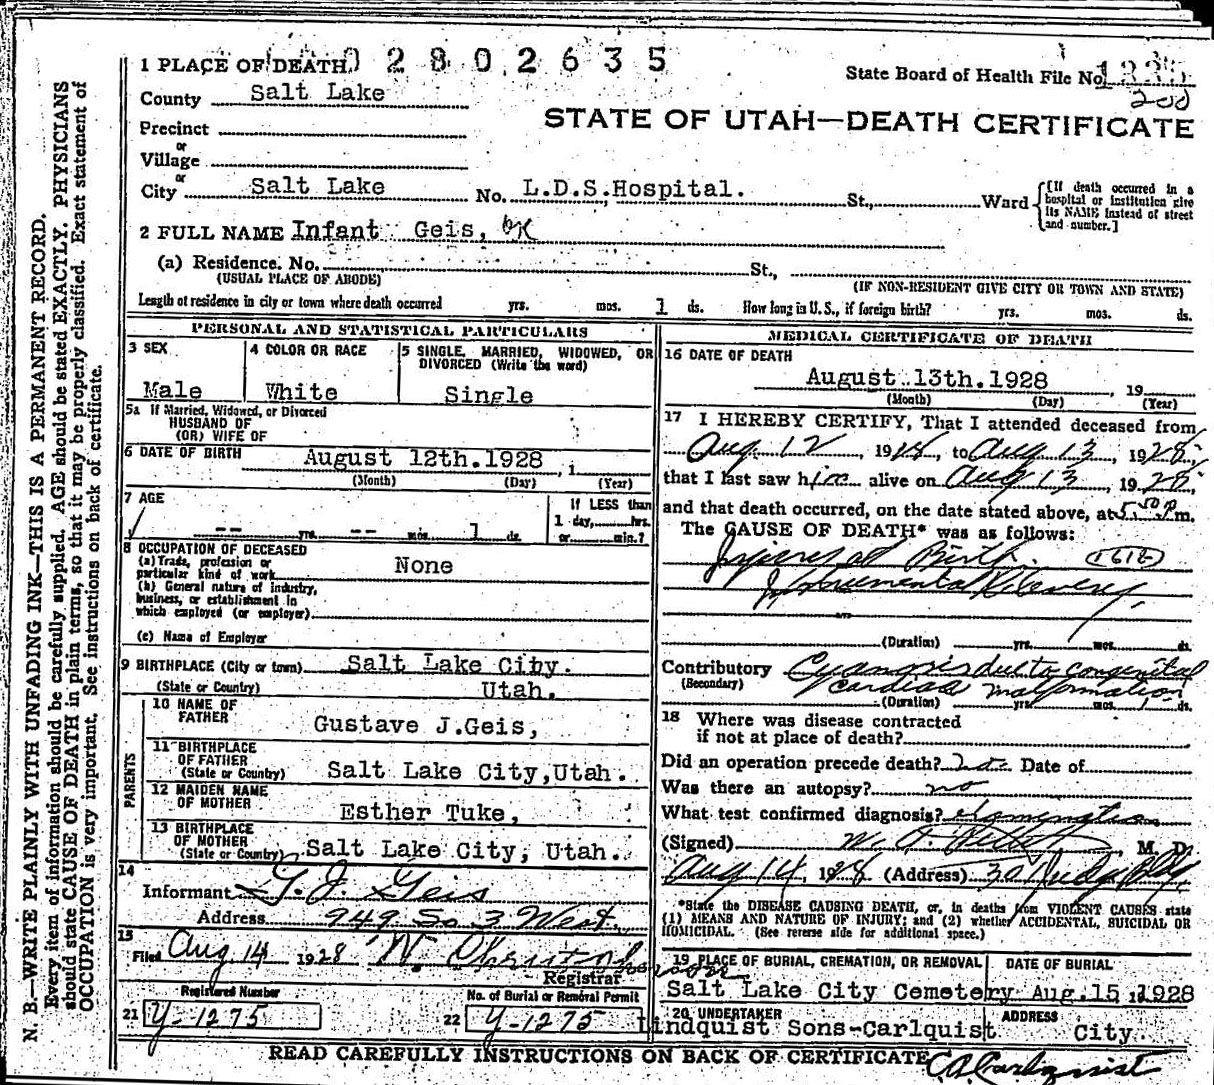 1 PLACE OF DEATH 0 2 8 0 2 6 3 5
State Board of Health File No. 1335
200
County Salt Lake
STATE OF UTAH—DEATH CERTIFICATE
Precinct
or
Village
or
City Salt Lake No. L.D.S.Hospital. St., Ward
[If death occurred in a hospital or institution give its NAME instead of street and number.]
2 FULL NAME Infant Geis,
(a) Residence. No. St.,
(USUAL PLACE OF ABODE) (IF NON-RESIDENT GIVE CITY OR TOWN AND STATE)
Length of residence in city or town where death occurred yrs. mos. 1 ds. How long in U.S., if foreign birth? yrs. mos. ds.
PERSONAL AND STATISTICAL PARTICULARS
3 SEX
Male
4 COLOR OR RACE
White
5 SINGLE, MARRIED, WIDOWED, OR
DIVORCED (Write the word)
Single
5a If Married, Widowed, or Divorced
HUSBAND OF
(OR) WIFE OF
6 DATE OF BIRTH August 12th.1928
(Month) (Day) (Year)
7 AGE
-- yrs. -- mos. 1 ds.
If LESS than
1 day, hrs.
or min.?
8 OCCUPATION OF DECEASED
(a) Trade, profession or
particular kind of work None
(b) General nature of industry,
business, or establishment in
which employed (or employer)
(c) Name of Employer
9 BIRTHPLACE (City or town) Salt Lake City.
(State or Country) Utah.
PARENTS
10 NAME OF
FATHER Gustave J.Geis,
11 BIRTHPLACE
OF FATHER
(State or Country) Salt Lake City,Utah.
12 MAIDEN NAME
OF MOTHER Esther Tuke,
13 BIRTHPLACE
OF MOTHER
(State or Country) Salt Lake City, Utah.
14
Informant G. J. Geis
Address 949 So 3 West
15
Filed Aug 14 1928
Registrar
Registered Number
21 Y-1275
No. of Burial or Removal Permit
22 Y-1275
MEDICAL CERTIFICATE OF DEATH
16 DATE OF DEATH
August 13th.1928 , 19
(Month) (Day) (Year)
17 I HEREBY CERTIFY, That I attended deceased from
Aug 12, 1928, to Aug 13, 1928,
that I last saw him alive on Aug 13, 1928,
and that death occurred, on the date stated above, at 5:50 P m.
The CAUSE OF DEATH* was as follows:
Injuries at Birth. (161b)
Instrumental Delivery,
(Duration) yrs. mos. ds.
Contributory Cyanosis due to congenital
(Secondary) cardiac malformation
(Duration) yrs. mos. 1 ds.
18 Where was disease contracted
if not at place of death?
Did an operation precede death? no Date of
Was there an autopsy? no
What test confirmed diagnosis? examination
(Signed) M. D.
Aug 14, 1928 (Address) 30 Judge Bldg
*State the DISEASE CAUSING DEATH, or, in deaths from VIOLENT CAUSES state
(1) MEANS AND NATURE OF INJURY; and (2) whether ACCIDENTAL, SUICIDAL OR
HOMICIDAL. (See reverse side for additional space.)
19 PLACE OF BURIAL, CREMATION, OR REMOVAL DATE OF BURIAL
Salt Lake City Cemetery Aug.15, 1928
20 UNDERTAKER ADDRESS
Lindquist Sons-Carlquist City.
READ CAREFULLY INSTRUCTIONS ON BACK OF CERTIFICATE
C A Carlquist
N. B.—WRITE PLAINLY WITH UNFADING INK—THIS IS A PERMANENT RECORD.
Every item of information should be carefully supplied. AGE should be stated EXACTLY. PHYSICIANS
should state CAUSE OF DEATH in plain terms, so that it may be properly classified. Exact statement of
OCCUPATION is very important. See instructions on back of certificate.